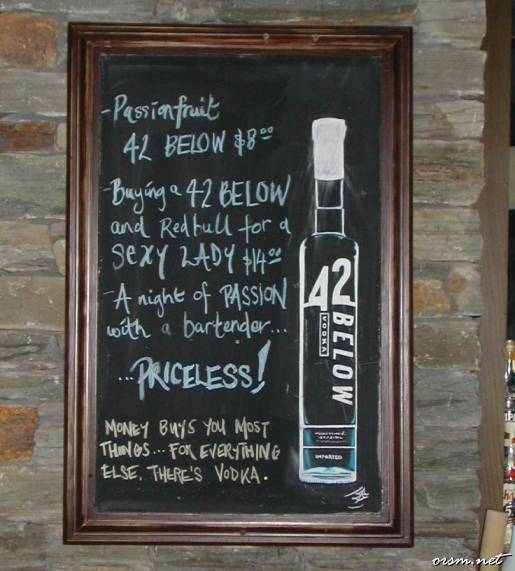 - Passionfruit
42 BELOW $8.00
- Buying a 42 BELOW
and Redbull for a
SEXY LADY $14.00
- A night of PASSION
with a bartender...
...PRICELESS!
MONEY BUYS YOU MOST
THINGS... FOR EVERYTHING
ELSE, THERE'S VODKA.
42
BELOW
VODKA
IMPORTED
orsm.net